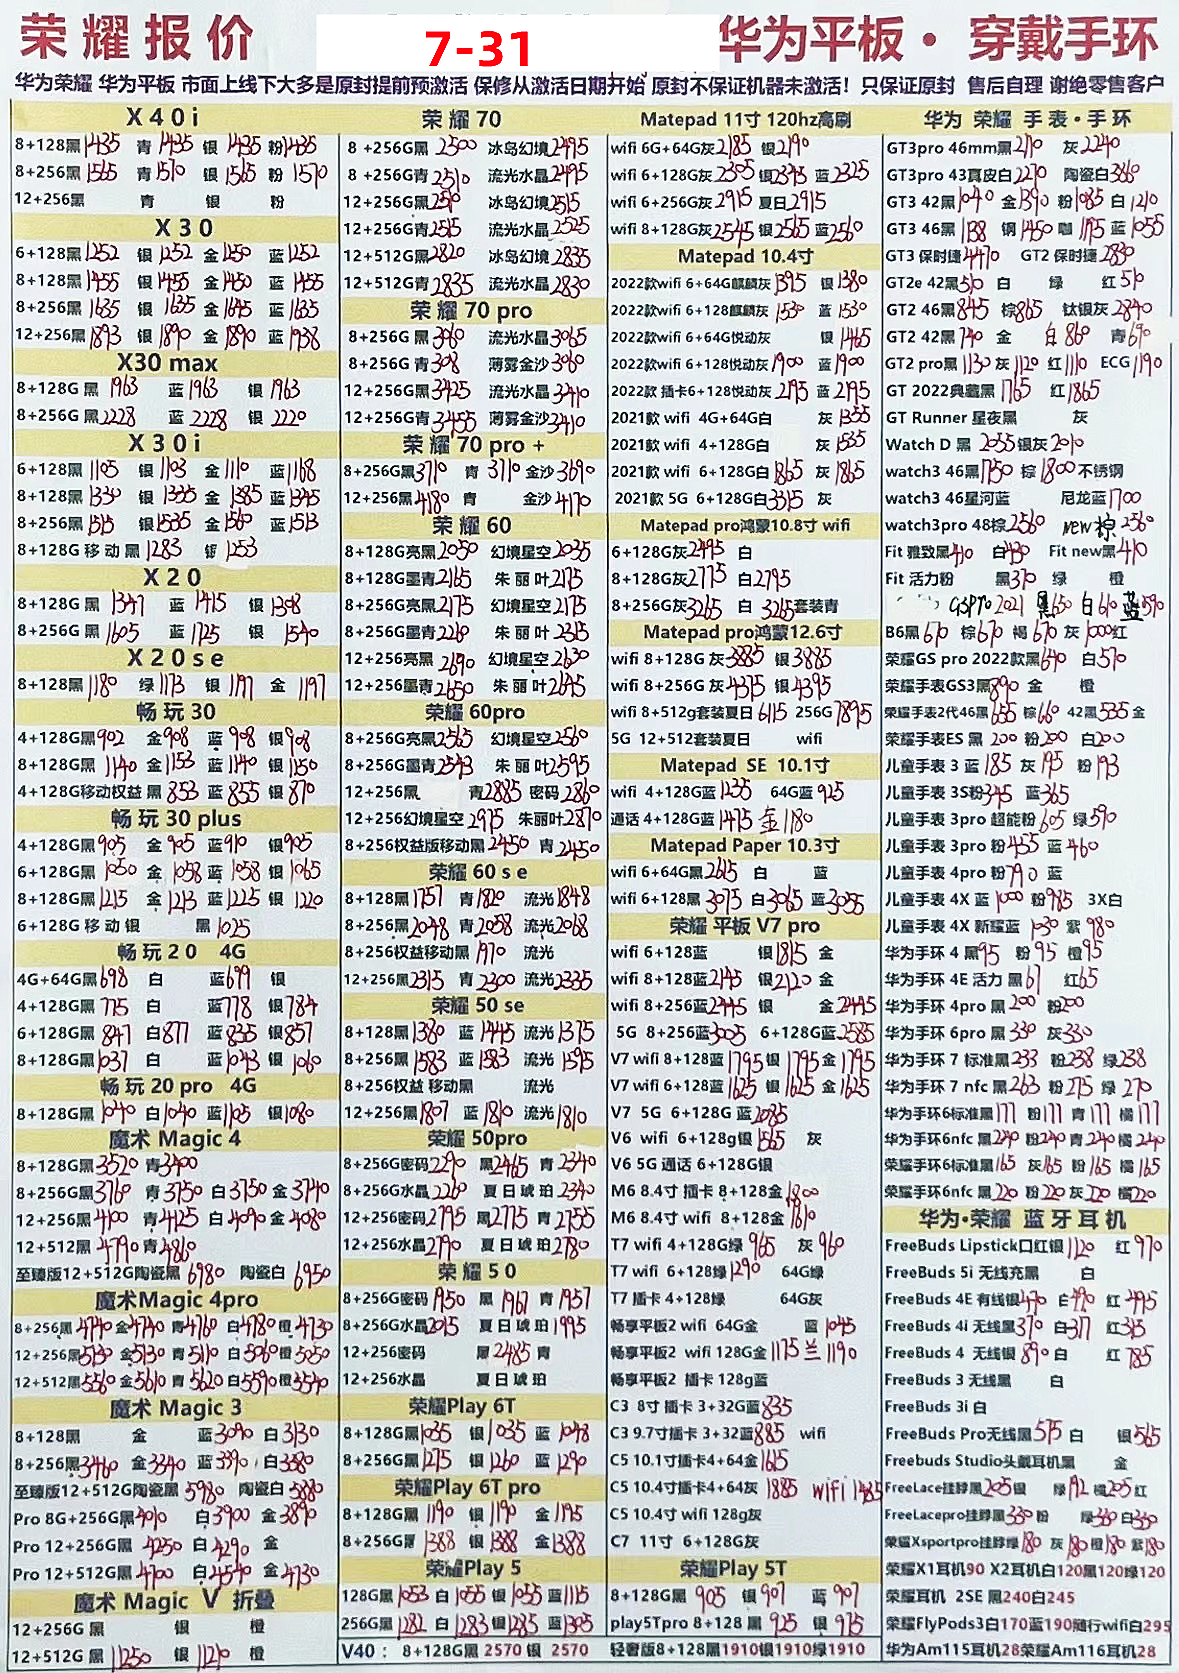 荣耀报价
7-31
华为平板·穿戴手环
华为荣耀 华为平板 市面上线下大多是原封提前预激活 保修从激活日期开始 原封不保证机器未激活！只保证原封 售后自理 谢绝零售客户
X40i
8+128黑1435 青1435 银1435 粉1435
8+256黑1565 青1570 银1565 粉1570
12+256黑 青 银 粉
X30
6+128黑1252 银1252 金1250 蓝1252
8+128黑1455 银1455 金1450 蓝1455
8+256黑1635 银1635 金1645 蓝1635
12+256黑1893 银1890 金1890 蓝1938
X30 max
8+128G 黑 1963 蓝1963 银 1963
8+256G 黑2228 蓝 2228 银 2220
X30i
6+128黑1105 银1103 金1110 蓝1168
8+128黑1330 银1335 金1385 蓝1345
8+256黑1515 银1535 金1560 蓝1513
8+128G 移动黑1283 银1253
X20
8+128G 黑 1347 蓝1415 银1398
8+256G 黑 1605 蓝1725 银 1540
X20se
8+128黑1180 绿1173 银 1197 金 1197
畅玩30
4+128G黑902 金908 蓝908 银908
8+128G黑1140 金1153 蓝1140 银1150
4+128G移动权益 黑 853 蓝855 银870
畅玩30 plus
4+128G黑905 金905 蓝910 银905
6+128G黑1050 金1058 蓝1058 银1065
8+128G黑1215 金1213 蓝1225 银1220
6+128G 移动 银 黑1025
畅玩20 4G
4G+64G黑698 白 蓝699 银
4+128G黑775 白 蓝778 银784
6+128G黑847 白877 蓝835 银857
8+128G黑1037 白 蓝1043 银1060
畅玩20 pro 4G
8+128G黑1040 白1040 蓝1105 银1080
魔术 Magic 4
8+128G黑3520 青3400
8+256G黑3760 青3750 白3750 金3740
12+256黑4100 青4125 白4090 金4080
12+512黑4790 青4860
至臻版12+512G陶瓷黑 6980 陶瓷白 6950
魔术Magic 4pro
8+256黑4740 金4740 青4760 白4780 橙4730
12+256黑5130 金5130 青5110 白5060 橙5050
12+512黑5560 金5610 青5620 白5590 橙5540
魔术 Magic 3
8+128黑 金 蓝3090 白3130
8+256黑3460 金3340 蓝3390 白3380
至臻版12+512G陶瓷黑 5980 陶瓷白 5880
Pro 8G+256G黑4010 白3900 金3890
Pro 12+256G黑 4250 白4290 金
Pro 12+512G黑4700 白4540 金4730
魔术 Magic V 折叠
12+256G 黑 银 橙
12+512G 黑 11250 银 11210 橙
荣耀70
8 +256G黑 2500 冰岛幻境2495
8 +256G青2510 流光水晶2495
12+256G黑2510 冰岛幻境2515
12+256G青2515 流光水晶2525
12+512G黑2820 冰岛幻境2835
12+512G青2835 流光水晶2830
荣耀70 pro
8+256G 黑 3060 流光水晶3065
8+256G 青 308 薄雾金沙3060
12+256G黑3425 流光水晶3410
12+256G青3455 薄雾金沙3410
荣耀70 pro +
8+256G黑3710 青 3710 金沙3690
12+256黑4180 青 金沙4170
荣耀60
8+128G亮黑2050 幻境星空2035
8+128G墨青2165 朱丽叶2175
8+256G亮黑2175 幻境星空2175
8+256G墨青2210 朱丽叶2315
12+256亮黑 2690 幻境星空2630
12+256墨青2650 朱丽叶2645
荣耀60pro
8+256G亮黑2565 幻境星空2560
8+256G墨青2543 朱丽叶2595
12+256黑 青2885 密码2860
12+256幻境星空2975 朱丽叶2870
8+256权益版移动黑2450 青2450
荣耀60 se
8+128黑1757 青1820 流光1848
8+256黑2048 青2058 流光2068
8+256权益移动黑1970 流光
12+256黑2315 青2300 流光2335
荣耀50 se
8+128黑1380 蓝1445 流光1375
8+256黑1583 蓝1583 流光1595
8+256权益 移动黑 流光
12+256黑1807 蓝1810 流光1810
荣耀50pro
8+256G密码2290 黑2465 青2340
8+256G水晶2260 夏日琥珀2340
12+256密码2795 黑2775 青2755
12+256水晶2790 夏日琥珀2780
荣耀50
8+256G密码1950 黑1967 青1957
8+256G水晶2015 夏日琥珀1995
12+256密码 黑2485 青
12+256水晶 夏日琥珀
荣耀Play 6T
8+128G黑1035 银1035 蓝1048
8+256G黑1275 银1260 蓝1290
荣耀Play 6T pro
8+128G黑1190 银1190 金1195
8+256G黑1388 银1388 金1388
荣耀Play 5
128G黑1053 白1055 银1055 蓝1115
256G黑1282 白1283 银1285 蓝1305
V40： 8+128G黑 2570 银 2570
Matepad 11寸 120hz高刷
wifi 6G+64G灰2185 银2190
wifi 6+128G灰2305 银2345 蓝2325
wifi 6+256G灰2915 夏日2915
wifi 8+128G灰2545 银2565 蓝2560
Matepad 10.4寸
2022款wifi 6+64G麒麟灰1395 银1380
2022款wifi 6+128麒麟灰1530 蓝1530
2022款wifi 6+64G悦动灰 银1465
2022款wifi 6+128悦动灰1900 蓝1900
2022款 插卡6+128悦动灰2195 蓝2195
2021款 wifi 4G+64G白 灰1355
2021款 wifi 4+128G白 灰1535
2021款 wifi 6+128G白1865 灰1865
2021款 5G 6+128G白3515 灰
Matepad pro鸿蒙10.8寸 wifi
6+128G灰2495 白
8+128G灰2775 白2795
8+256G灰3265 白 3265套装青
Matepad pro鸿蒙12.6寸
wifi 8+128G 灰3885 银3885
wifi 8+256G 灰4375 银4395
wifi 8+512g套装夏日6115 256G7895
5G 12+512套装夏日 wifi
Matepad SE 10.1寸
wifi 4+128G蓝1235 64G蓝925
通话 4+128G蓝1475 金1180
Matepad Paper 10.3寸
wifi 6+64G黑2615 白 蓝
wifi 6+128黑3075 白3065 蓝3055
荣耀 平板 V7 pro
wifi 6+128蓝 银1815 金
wifi 8+128蓝2145 银2120 金
wifi 8+256蓝2445 银 金2445
5G 8+256蓝3025 6+128G蓝2585
V7 wifi 8+128蓝1795 银1795 金1795
V7 wifi 6+128蓝1625 银1625 金1625
V7 5G 6+128G 蓝2085
V6 wifi 6+128g银1565 灰
V6 5G 通话 6+128G银
M6 8.4寸 插卡 8+128金1800
M6 8.4寸 wifi 8+128金1610
T7 wifi 4+128G绿 965 灰 960
T7 wifi 6+128绿1290 64G绿
T7 插卡 4+128绿 64G灰
畅享平板2 wifi 64G金 蓝 1045
畅享平板2 wifi 128G金1175 兰1190
畅享平板2 插卡 128g蓝
C3 8寸 插卡 3+32G蓝835
C3 9.7寸插卡 3+32蓝885 wifi
C5 10.1寸插卡4+64金1615
C5 10.4寸插卡4+64灰 1885 wifi 1485
C5 10.4寸 wifi 128g灰
C7 11寸 6+128G灰
荣耀Play 5T
8+128G黑 905 银907 蓝 907
play5Tpro 8+128 黑 925 银 915
轻奢版8+128黑1910银1910绿1910
华为 荣耀 手表·手环
GT3pro 46mm黑2110 灰2240
GT3pro 43真皮白2270 陶瓷白3860
GT3 42黑1040 金1390 粉1085 白1210
GT3 46黑1138 钢1450 咖1195 蓝1055
GT3 保时捷4470 GT2 保时捷2830
GT2e 42黑510 白 绿 红510
GT2 46黑845 棕865 钛银灰2840
GT2 42黑740 金 白860 青690
GT2 pro黑1130 灰1120 红1110 ECG1190
GT 2022典藏黑1765 红1865
GT Runner 星夜黑 灰
Watch D 黑 2035银灰2010
watch3 46黑1750 棕1800不锈钢
watch3 46星河蓝 尼龙蓝1700
watch3pro 48棕2560 new棕2560
Fit 雅致黑410 白430 Fit new黑410
Fit 活力粉 黑370 绿 橙
GSPro 2021 黑650 白610 蓝590
B6黑670 棕670 褐670 灰1000红
荣耀GS pro 2022款黑640 白570
荣耀手表GS3黑890 金 橙
荣耀手表2代46黑655 棕660 42黑535金
荣耀手表ES 黑 200 粉200 白200
儿童手表 3 蓝 185 灰 195 粉 193
儿童手表 3S粉345 蓝365
儿童手表 3pro 超能粉 605 绿590
儿童手表 3pro 粉455 蓝460
儿童手表 4pro 粉790 蓝
儿童手表 4X 蓝1000 粉985 3X白
儿童手表 4X 新耀蓝 1030 紫980
华为手环 4 黑95 粉95 橙95
华为手环 4E 活力 黑67 红65
华为手环 4pro 黑200 粉200
华为手环 6pro 黑330 灰330
华为手环 7 标准黑233 粉238 绿238
华为手环 7 nfc 黑263 粉275 绿270
华为手环6标准黑177 粉177 青177 橘177
华为手环6nfc 黑240 粉240青240橘240
荣耀手环6标准黑165 灰165 粉165 橘165
荣耀手环6nfc 黑220 粉220灰220橘220
华为·荣耀 蓝牙耳机
FreeBuds Lipstick口红银1120 红970
FreeBuds 5i 无线充黑 白
FreeBuds 4E 有线银470 白490 红495
FreeBuds 4i 无线黑370 白377 红375
FreeBuds 4 无线银890白 红785
FreeBuds 3 无线黑 白
FreeBuds 3i 白
FreeBuds Pro无线黑575 白 银565
Freebuds Studio头戴耳机黑 金
FreeLace挂脖黑205银 绿192 橘205红
FreeLacepro挂脖黑330粉 绿330白330
荣耀Xsportpro挂脖绿180 灰180橙180紫180
荣耀X1耳机90 X2耳机白120黑120绿120
荣耀耳机 2SE 黑240白245
荣耀FlyPods3白170蓝190随行wifi白295
华为Am115耳机28荣耀Am116耳机28